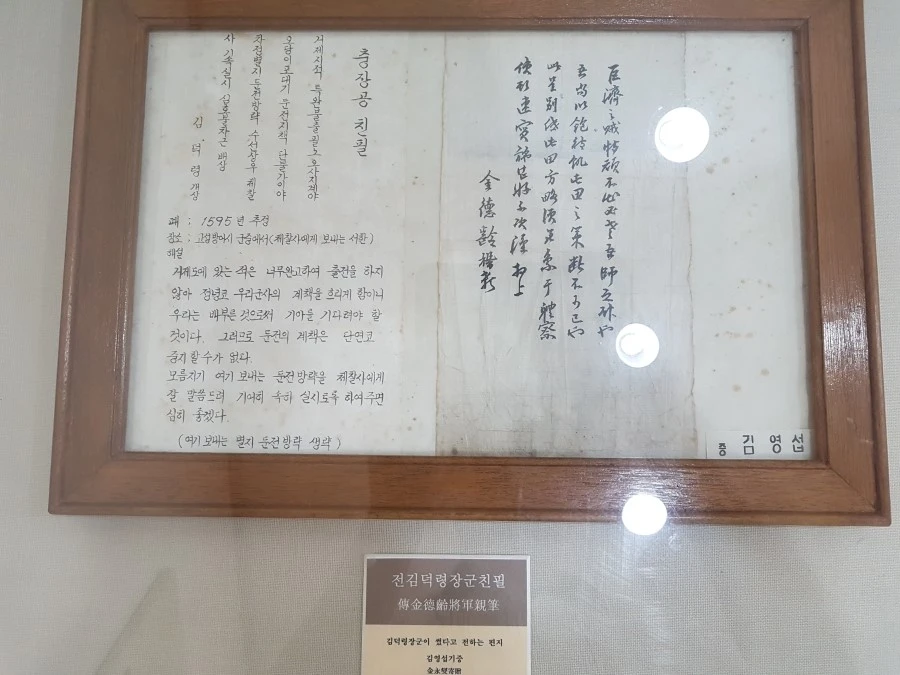 巨濟之賊特頑不出必老吾師之計也
吾當以飽待飢屯田之策斷不可已也
此呈別紙屯田方略須 于體察
使 速實施甚好不次謹拜上
金德齡
충장공 친필
거제지적 특완불출필노 오사지계야
오당이포대기 둔전지책 단불가이야
차정별지 둔전방략 수선상우 체찰
사 기속실시 심호불차근 배상
김덕령 개상
때 : 1595년 추정
장소 : 고성방어시 군중에서(체찰사에게 보내는 서한)
해설
거제도에 있는 적은 너무완고하여 출전을 하지
않아 정녕코 우리군사의 계책을 흐리게 함이니
우리는 배부른 것으로써 기아를 기다려야 할
것이다. 그러므로 둔전의 계책은 단연코
중지 할 수가 없다.
모름지기 여기 보내는 둔전방략을 체찰사에게
잘 말씀드려 기어히 속히 실시토록 하여주면
심히 좋겠다.
(여기 보내는 별지 둔전방략 생략)
증 김영섭
전김덕령장군친필
傳金德齡將軍親筆
김덕령장군이 썼다고 전하는 편지
김영섭기증
金永燮寄贈